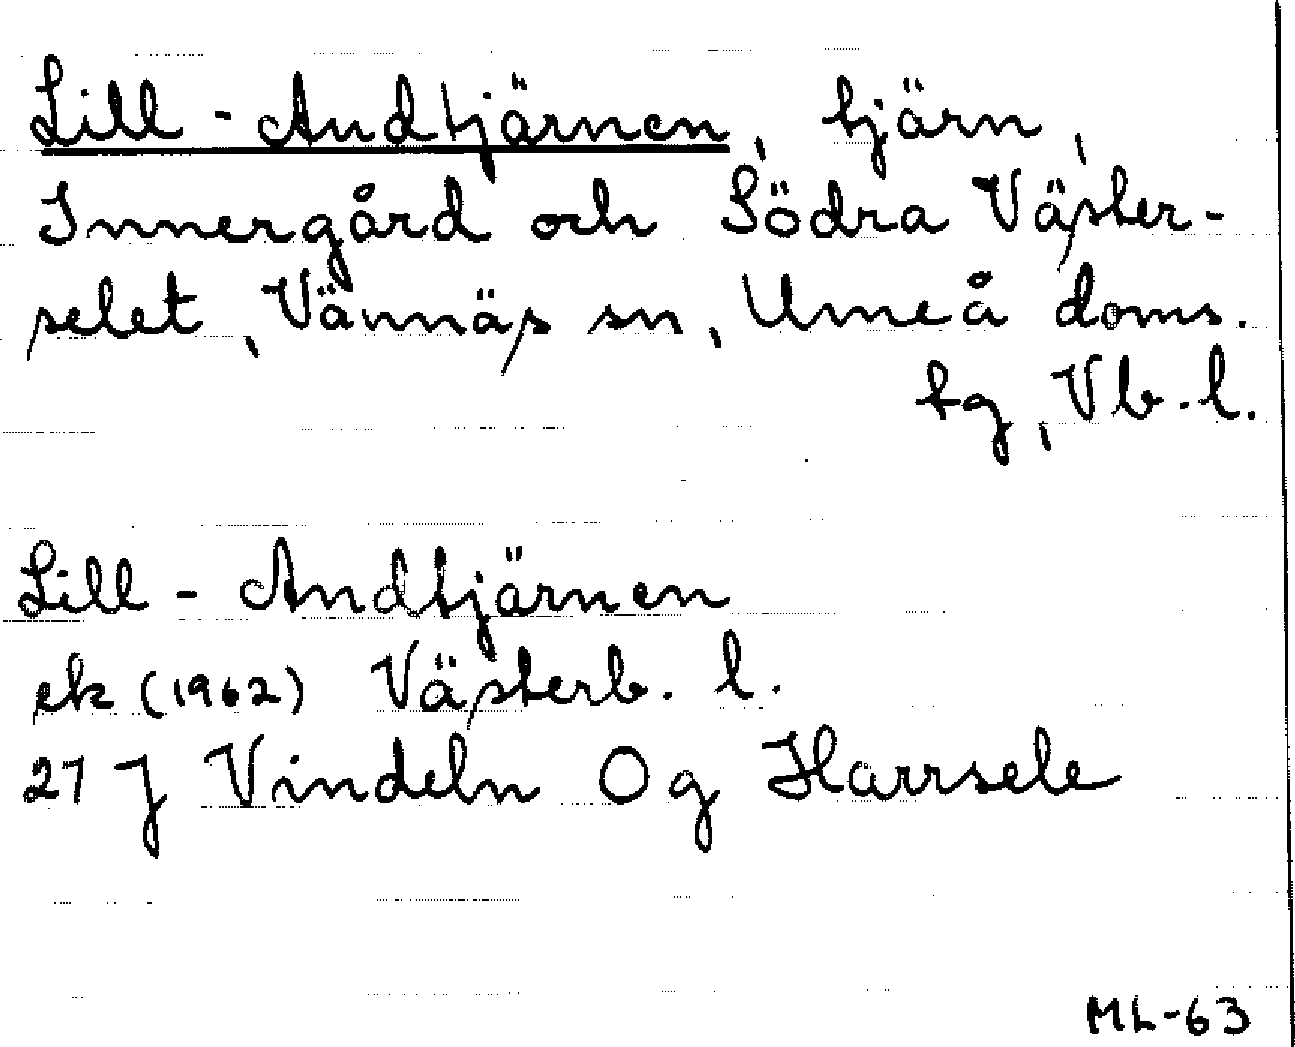 Lill-Andtjärnen, tjärn,
Innergård och Södra Väster-
selet, Vännäs sn, Umeå doms.
tg, Vb.l.
Lill-Andtjärnen
ek (1962) Västerb. l.
21 J Vindeln Og Harrsele
ML-63